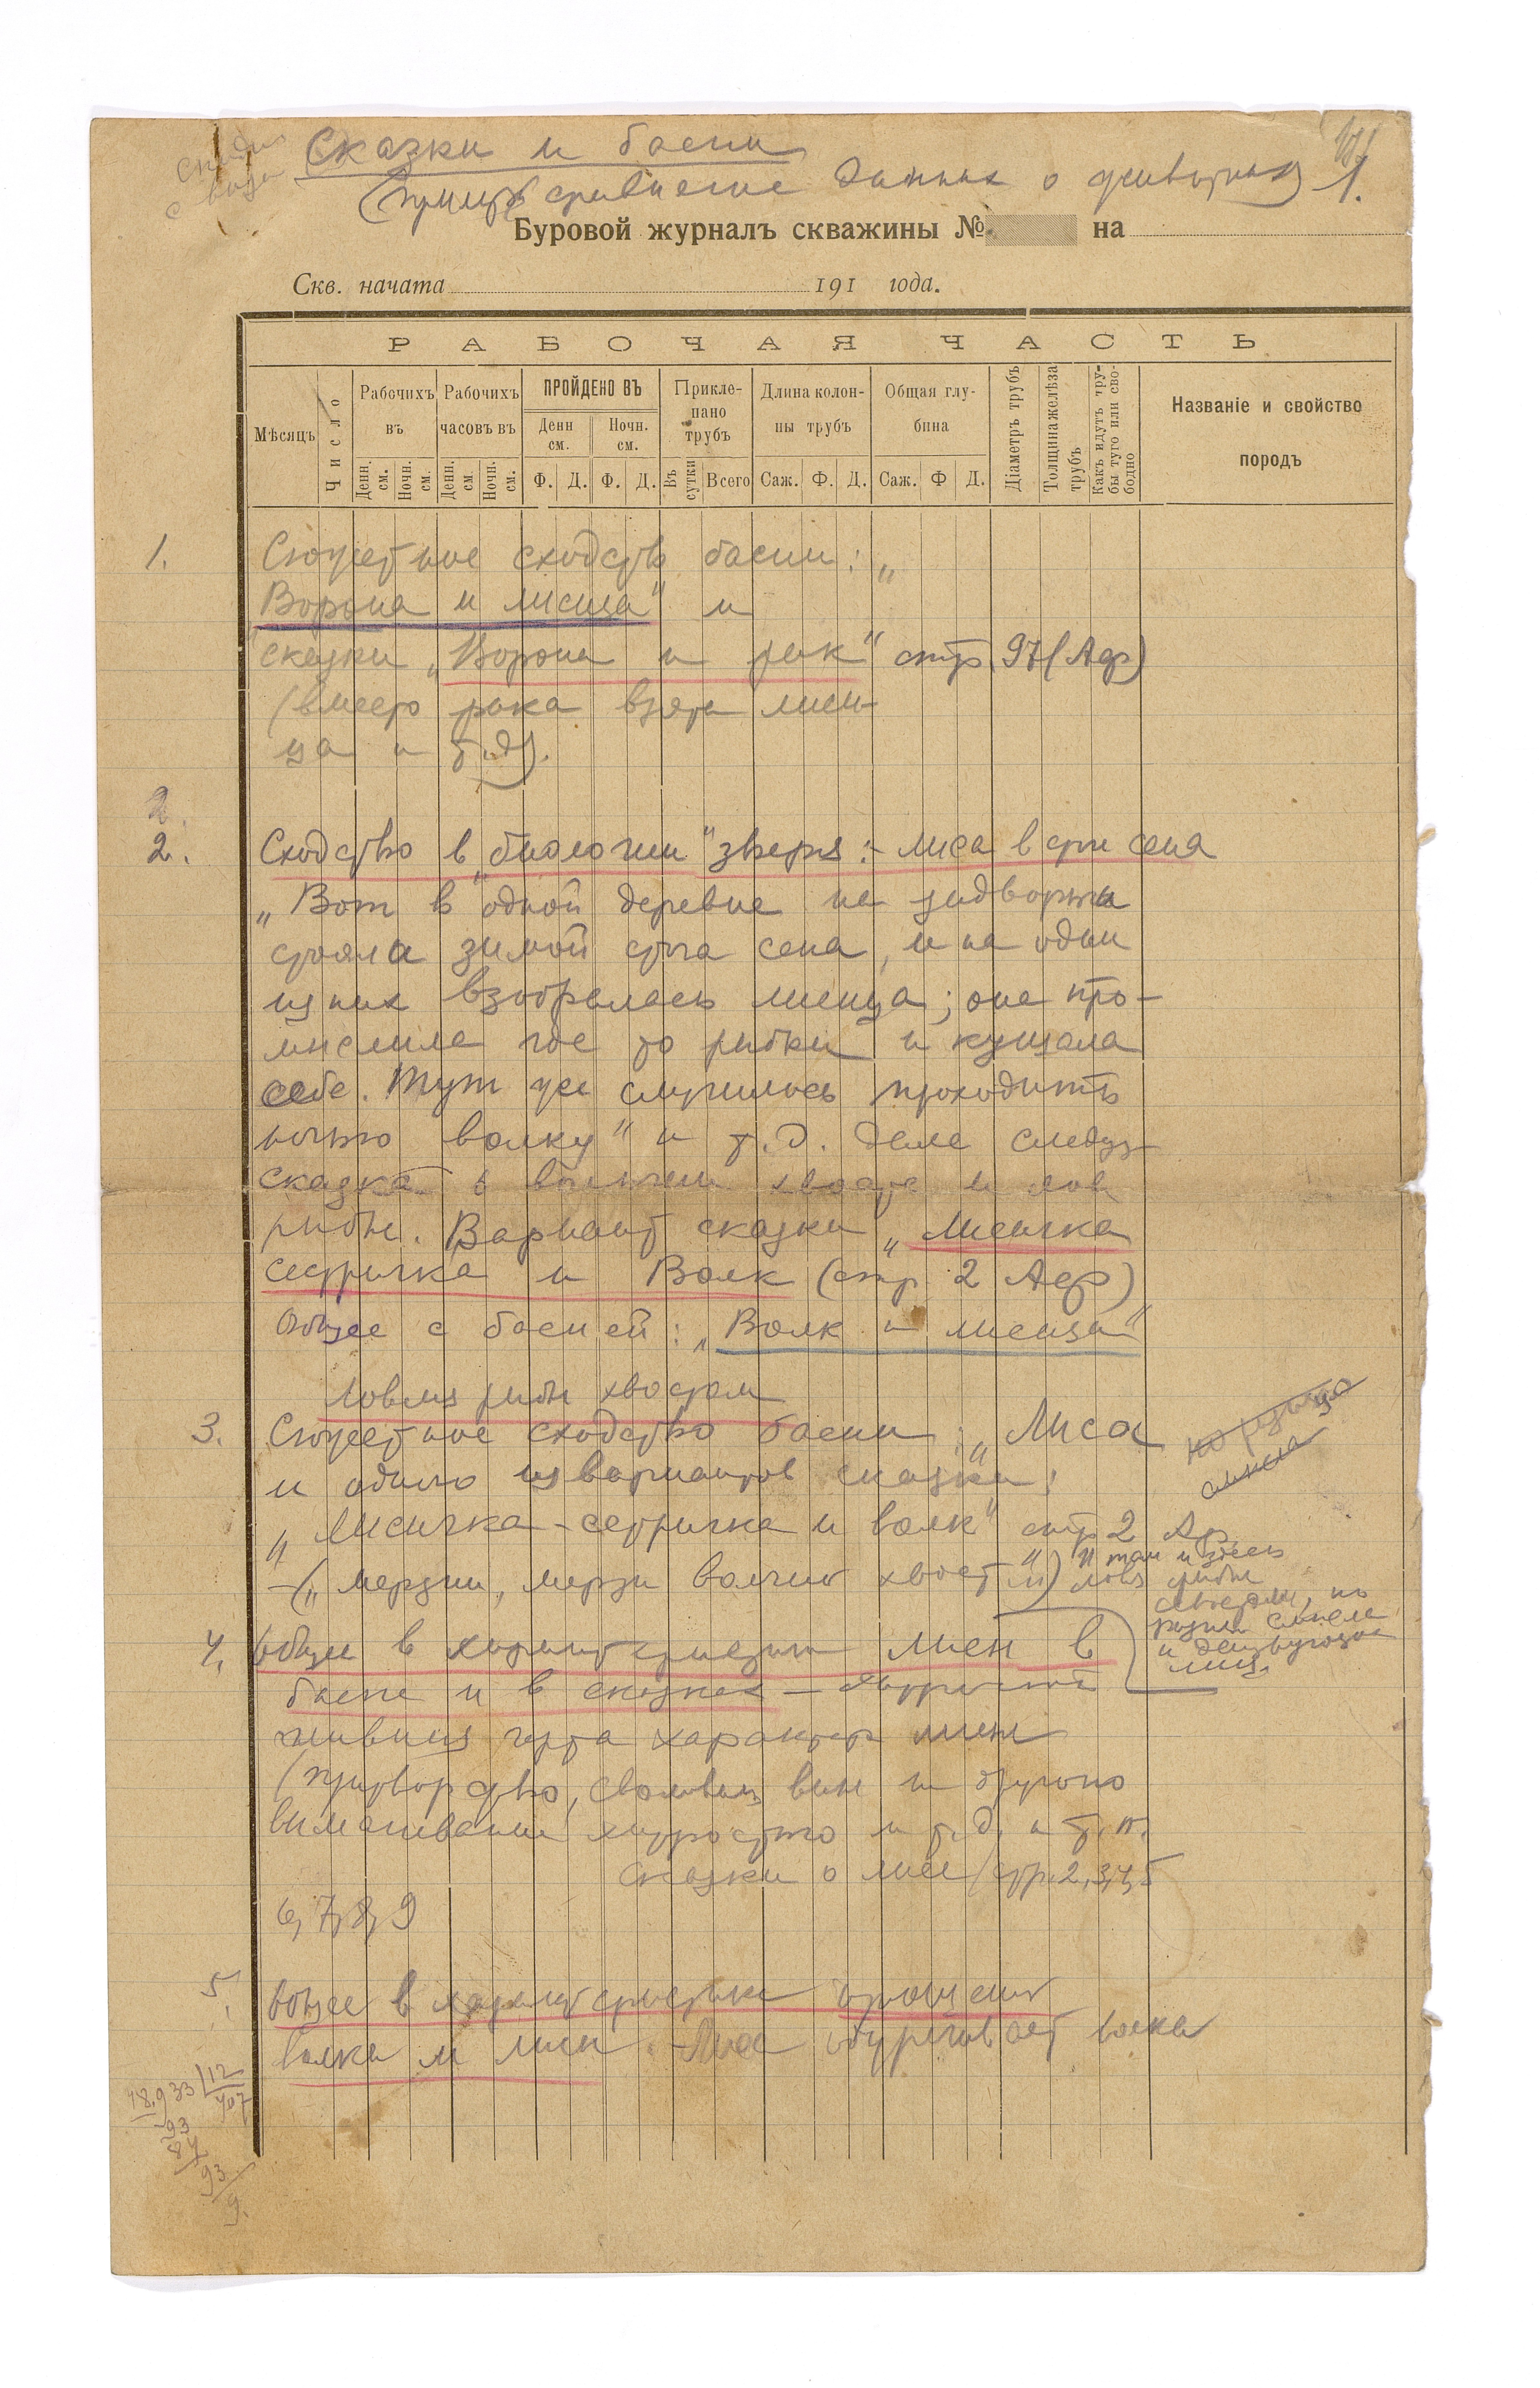 Сказки и басни
(пример сравнение данных о животных) 1.
Буровой журналъ скважины № на
Скв. начата 191 года.
РАБОЧАЯ ЧАСТЬ
Мѣсяцъ
Число
Рабочихъ въ
Денн. см.
Ночн. см.
Рабочихъ часовъ въ
Денн. см
Ночн. см.
ПРОЙДЕНО ВЪ
Денн см.
Ночн. см.
Ф. Д. Ф. Д.
Прикле-
пано
трубъ
Въ сутки
Всего
Длина колон-
ны трубъ
Саж. Ф. Д.
Общая глу-
бина
Саж. Ф Д.
Діаметръ трубъ
Толщина желѣза трубъ
Какъ идутъ тру-
бы туго или сво-
бодно
Названіе и свойство
породъ
1. Сюжетное сходство басни: „
Ворона и лисица" и
сказки „Ворона и рак" стр 97 (Аф)
(вместо рака взята лиси-
ца и т.д).
2.
2. Сходство в „биологии" зверя: - лиса в стоге сена
„Вот в одной деревне на задворках
стояла зимой стога сена, и на один
из них взобралась лисица; она про-
мыслила где то рыбки и кушала
себе. Тут же случилось проходить
ночью волку" и т.д. Далее следует
сказка о хвоста и лов
рыбы. Вариант сказки „Лисичка
сестричка и Волк (стр 2 Аф)
Общее с басней: „Волк и лисица"
ловля рыбы хвостом
3. Сюжетное сходство басни: „Лиса
и одного из вариантов сказки:
„Лисичка-сестричка и волк" стр 2 Аф.
- („мерзни, мерзни волчий хвост") и там и здесь
ловля рыбы
хвостом, но
разный смысл
и действующие
лица.
4. Общее в характеристике лисы в
басне и в сказках - хитрость
черта характера лисы
(притворство, сваливание вины на другого
выманивание хитростью и т.д. и т.п.
сказки о лисе (стр. 2, 3, 4, 5
6, 7, 8, 9
5. Общее в характеристике отношений
волка и лисы. - Лиса одурачивает волка
48.933 | 12
407
93
84
93
9.